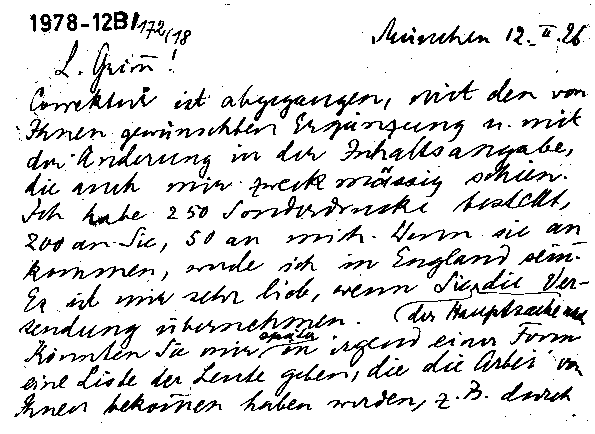 1978-12B/172/18
München 12. II. 26
L. Grimm!
Correktur ist abgegangen, mit den von
Ihnen gewünschten Ergänzung u. mit
der Änderung in der Inhaltsangabe,
die auch mir zweckmässig schien.
Ich habe 250 Sonderdrucke bestellt,
200 an Sie, 50 an mich. Wenn sie an
kommen, werde ich in England sein.
Es ist mir sehr lieb, wenn Sie die Ver-
sendung übernehmen. der Hauptsache nach
Könnten Sie mir später in irgend einer Form
eine Liste der Leute geben, die die Arbeit von
Ihnen bekommen haben werden, z. B. durch